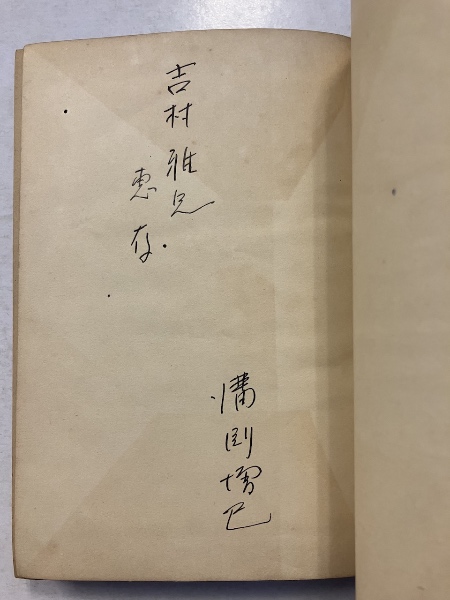 吉村雅兄
恵存
溝渕増巳